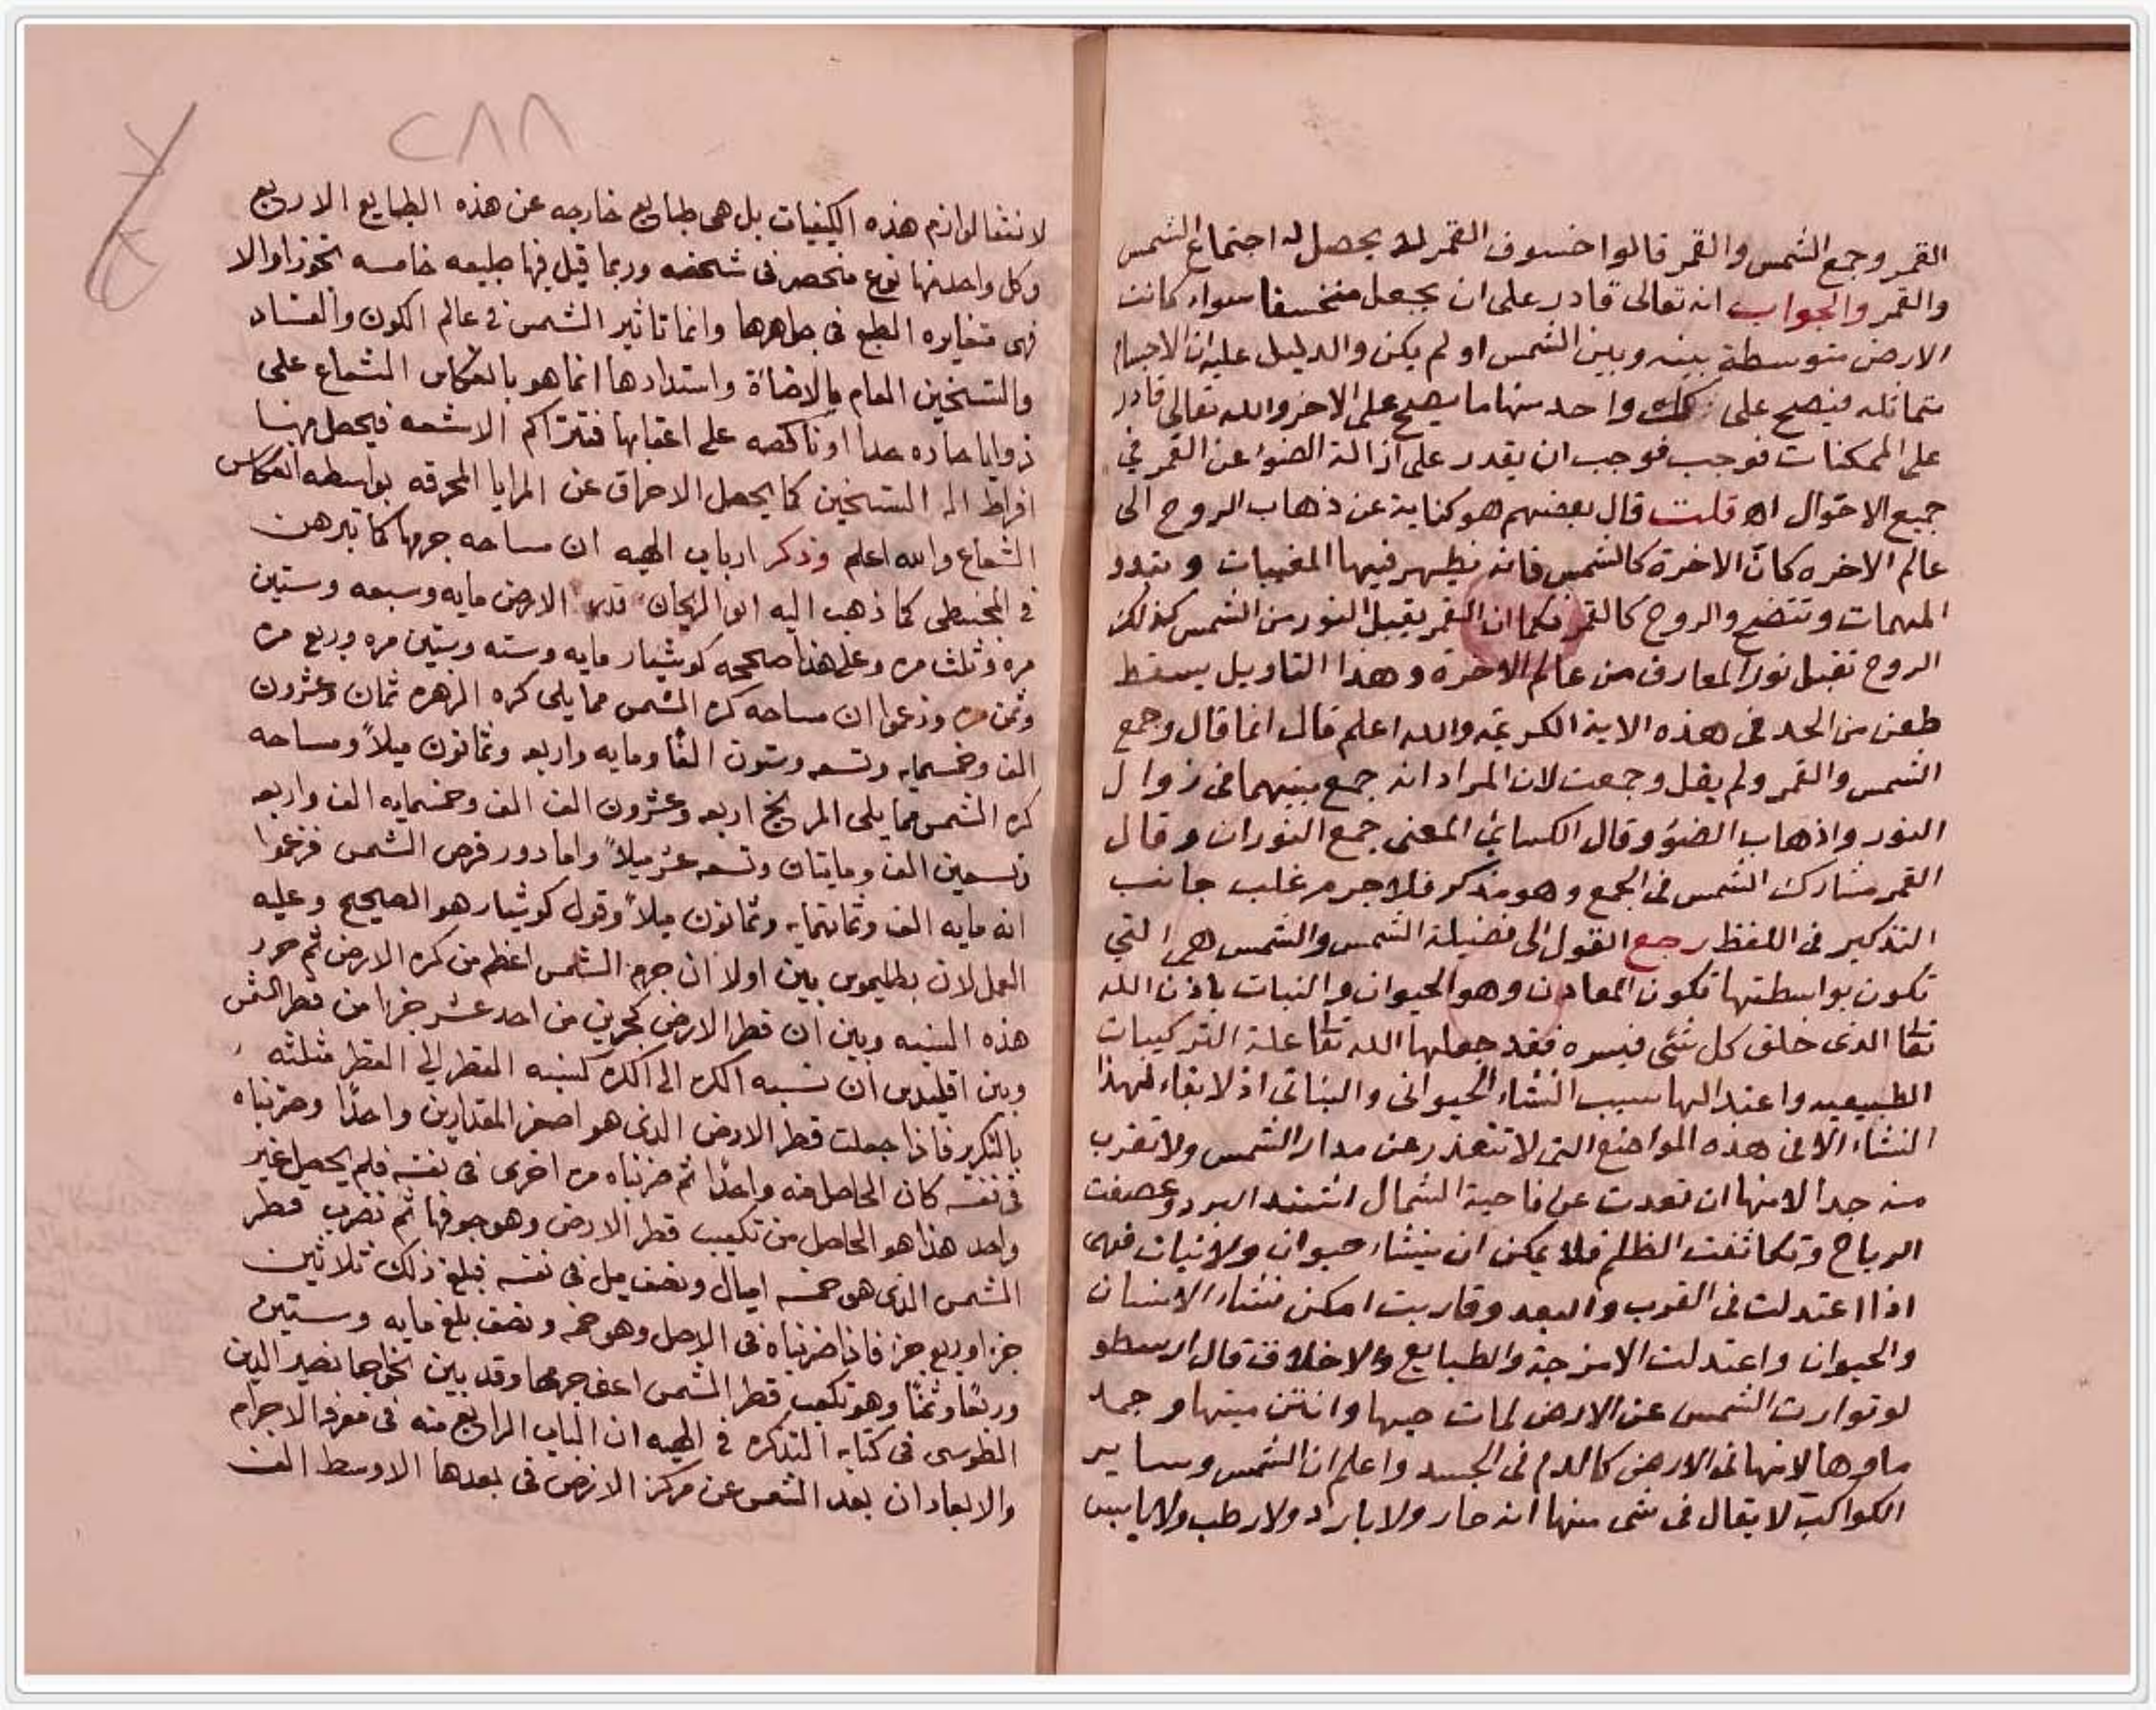 القمر وجمع الشمس والقمر قالوا خسوف القمر لا يحصل له اجتماع الشمس
والقمر والجواب انه تعالى قادر على ان يجعل منخسفا سواء كانت
الارض متوسطة بينه وبين الشمس او لم يكن والدليل عليه ان الاجسام
متماثله فيصح على كل واحد منها ما يصح على الاخر والله تعالى قادر
على الممكنات فوجب فوجب ان يقدر على ازالة الضوء عن القمر في
جميع الاحوال اه قلت قال بعضهم هو كناية عن ذهاب الروح الى
عالم الاخره كان الاخرة كالشمس فانه يظهر فيها المغيبات و
المبهمات وتتضح والروح كالقمر فكما ان القمر يقبل النور من الشمس كذلك
الروح تقبل نور المعارف من عالم الاخرة وهذا التاويل يسقط
طعن من الحد في هذه الاية الكريمة والله اعلم قال انما قال وجمع
الشمس والقمر ولم يقل وجمعت لان المراد انه جمع بينهما في زوال
النور واذهاب الضوء وقال الكسائي المعنى جمع النوران وقال
القمر مشارك الشمس في الجمع وهو مذكر فلا جرم غلب جانب
التذكير في اللفظ رجع القول الى فضيلة الشمس والشمس هي التي
تكون بواسطتها تكون المعادن وهو الحيوان والنبات باذن الله
تعا الذى خلق كل شئ فيسره فقد جعلها الله تعا علة التركيبات
الطبيعيه واعتدالها سبب النشاء الحيوانى والنباتى اذ لا بقاء لهذا
النشاء الا فى هذه المواضع التى لا تتعذر عن مدار الشمس ولا تقرب
منه جدا لانها ان تعدت عن ناحية الشمال اشتد البرد وعصفت
الرياح وتكاثفت الظلم فلا يمكن ان ينشاء حيوان ولا نبات فهى
اذا اعتدلت فى القرب والبعد وقاربت امكن نشاء الانسان
والحيوان واعتدلت الامزجة والطبايع والاخلاق قال ارسطو
لو توارت الشمس عن الارض لمات حيها وانتن ميتها وجمد
ماوها لانها فى الارض كالدم فى الجسد واعلم ان الشمس وساير
الكواكب لا يقال فى شى منها انه حار ولا بارد ولا رطب ولا يابس
٢٨٨
لانتفا لوازم هذه الكيفيات بل هى طبايع خارجه عن هذه الطبايع الاربع
وكل واحد منها نوع منحصر فى شخصه وربما قيل فيها طبيعه خامسه تجوزا والا
فهى متغايره الطبع فى جواهرها وانما تاثير الشمس في عالم الكون والفساد
والتسخين العام بالاضاة واستدادها انما هو بانعكاس الشعاع على
زوايا حاده جدا او ناكصه على اعقابها فتتراكم الاشعه فيحصل منها
افراط الـ التسخين كما يحصل الاحراق عن المرايا المحرقه بواسطه انعكاس
الشعاع والله اعلم وذكر ارباب الهيه ان مساحه جرمها كما تبرهن
فى المجسطى كما ذهب اليه ابو الريحان قدر الارض مايه وسبعه وستين
مره وثلث مره وعلى هذا صححه كوشيار مايه وسته وستين مره وربع مره
وثمن مره وزعموا ان مساحه كره الشمس مما يلى كره الزهره ثمان وعشرون
الف وخمسمايه وتسعه وستون الفا ومايه واربعه وثمانون ميلا ومساحه
كره الشمس مما يلى المريخ اربعه وعشرون الف الف وخمسمايه الف واربعه
وتسعين الف ومايتان وتسعه عشر ميلا واما دور قرص الشمس فزعموا
انه مايه الف وثمانمايه وثمانون ميلا وقول كوشيار هو الصحيح وعليه
العمل لان بطليموس بين اولا ان جرم الشمس اعظم من كره الارض ثم حرر
هذه النسبه وبين ان قطر الارض كجزين من احد عشر جزا من قطر الشمس
وبين اقليدس ان نسبه الكره الى الكره كنسبه القطر الى القطر مثلثه
بالتكرير فاذا جعلت قطر الارض الذى هو اصغر المقدارين واحدا وضربناه
فى نفسه كان الحاصل منه واحدا ثم ضربناه مره اخرى فى نفسه فلم يحصل غير
واحد هذا هو الحاصل من تكعيب قطر الارض وهو جوفها ثم نضرب قطر
الشمس الذى هو خمسه اميال ونصف ميل فى نفسه فبلغ ذلك ثلاثين
جزا وربع جزا فاذا ضربناه فى الاصل وهو خمسه ونصف بلغ مايه وستين
وربعا وثمنا وهو تكعيب قطر الشمس اعنى جرمها وقد بين الخواجا نصير الدين
الطوسى فى كتابه التذكره فى الهيه ان الباب الرابع منه فى معرفه الاجرام
والابعاد ان بعد الشمس عن مركز الارض فى بعدها الاوسط الف